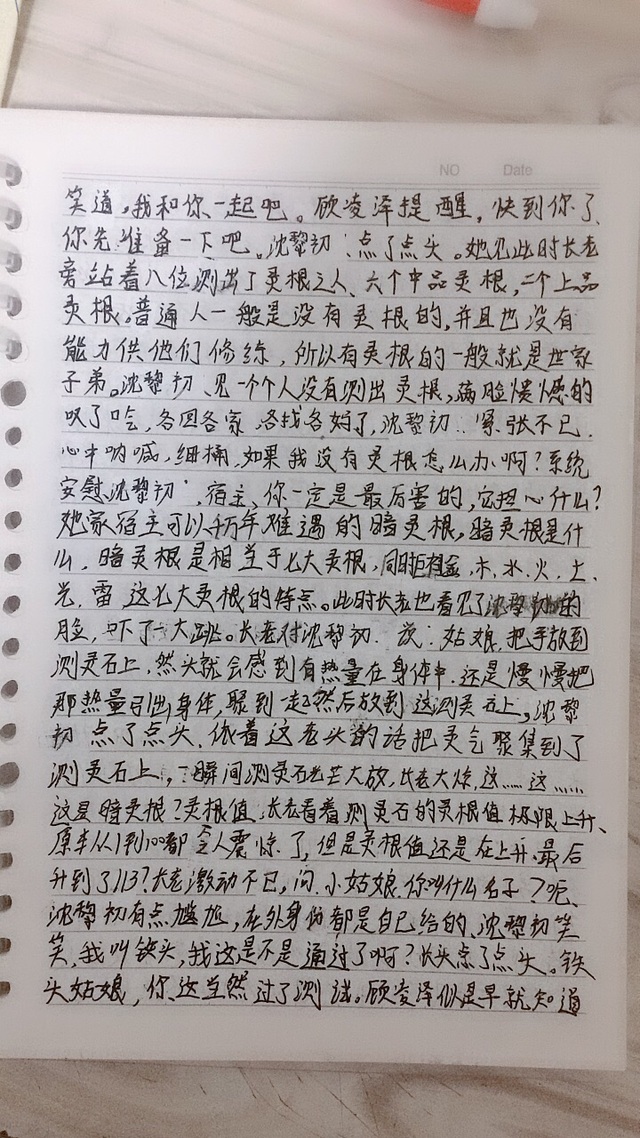 NO Date
笑道，我和你一起吧。顾凌泽提醒，快到你了、
你先准备一下吧。沈黎初点了点头。她见此时长老
旁站着八位测出了灵根之人、六个中品灵根，二个上品
灵根。普通人一般是没有灵根的，并且也没有
能力供他们修练，所以有灵根的一般就是世家
子弟。沈黎初、见一个个人没有测出灵根，满脸愤慨的
叹了口气，各回各家、各找各妈了，沈黎初紧张不已．
心中呐喊，细桶，如果我没有灵根怎么办啊？系统
安慰沈黎初，宿主、你一定是最厉害的，它担心什么？
她家宿主可以千万年难遇的暗灵根，暗灵根是什
么，暗灵根是相当于七大灵根，同时金、木、水、火、土、
光、雷这七大灵根的特点。此时长老也看见了沈黎初的
脸，吓了一大跳。长老对沈黎初说：姑娘，把手放到
测灵石上，然头就会感到有热量在身体中．还是慢慢把
那热量引出身体，聚到一起然后放到这测灵石上，沈黎
初点了点头、依着这老头的话把灵气聚集到了
测灵石上，瞬间测灵石光芒大放，长老大惊，这……这……
这是暗灵根？灵根值，长老看着测灵石的灵根值极限上升、
原本从1到100都令人震惊了，但是灵根值还是在上升、最后
升到了113？长老激动不已，问．小姑娘．你叫什么名子？呃、
沈黎初有点尴尬，在外身份都是自己给的、沈黎初笑
笑，我叫铁头，我这是不是通过了啊？长头点了点头。铁
头姑娘，你、这当然过了测试。顾凌泽似是早就知道